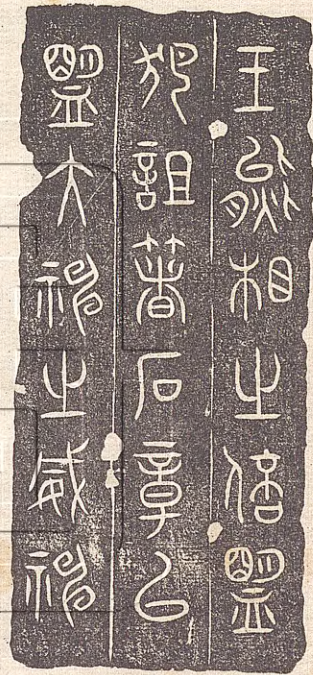 王熊相之倍盟
犯詛著石章以
盟大神之威神